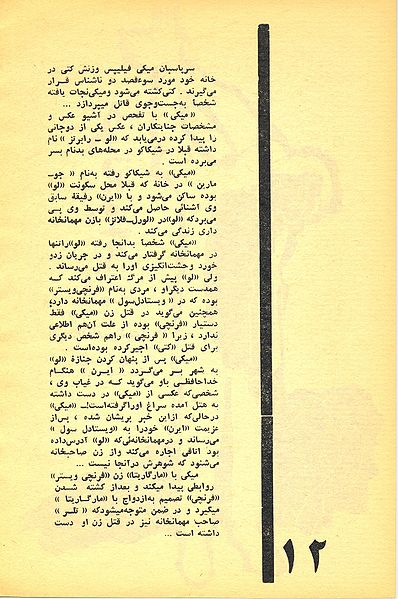 سرپاسبان میکی فیلیپس وزنش کتی در
خانه خود مورد سوءقصد دو ناشناس قرار
می‌گیرند . کتی‌کشته می‌شود ومیکی‌نجات یافته
شخصا به‌جست‌وجوی قاتل میپردازد ...
«میکی» با تفحص در آشیو عکس و
مشخصات جنایتکاران ، عکس یکی از دوجانی
را پیدا کرده درمی‌یابد که «لو ـ رابرتز » نام
داشته قبلا در شیکاگو در محله‌های بدنام بسر
می‌برده است .
«میکی» به شیکاگو رفته به‌نام « جوـ
مارین » در خانه که قبلا محل سکونت «لو»
بوده ساکن می‌شود و با «ایرن» رفیقهٔ سابق
وی آشنائی حاصل می‌کند و توسط وی پی
می‌بردکه «لو»در «لورل‌ـفلاتز» بازن مهمانخانه
داری زندگی می‌کند .
«میکی» شخصا بدانجا رفته «لو»راتنها
در مهمانخانه گرفتار می‌کند و در جریان زدو
خورد وحشت‌انگیزی اورا به قتل می‌رساند .
ولی «لو» پیش از مرگ اعتراف می‌کند کـه
همدست دیگراو ، مردی به‌نام «فرنچی‌ویستر»
بوده که در « ویستادل‌سول » مهمانخانه دارد،
همچنین می‌گوید در قتل زن «میکی» فقط
دستیار «فرنچی» بوده از علت آن‌هم اطلاعی
ندارد ، زیرا « فرنچی » راهم شخص دیگری
برای قتل «کتی» اجیرکرده بوده‌است .
«میکی» پس از پنهان کردن جنازهٔ «لو»
به شهر بـر می‌گـردد « ایـرن » هنگـام
خداحافظی باو می‌گوید کـه در غیاب وی ،
شخصی‌که عکسی از «میکی» در دست داشته
به هتل آمده سراغ اوراگرفته‌است!ـ «میکی»
درحالی‌که ازاین خبر پریشان شده ، پس‌از
عزیمت «ایرن» خودرا به «ویستادل سول »
می‌رساند و درمهمانخانه‌ئی‌که «لو» آدرس‌داده
بود اتاقی اجاره می‌کند واز زن صاحبخانه
می‌شنود که شوهرش درآنجا نیست ...
میکی با «مارگاریتا» زن «فرنچی ویستر»
روابطی پیدا میکند و بعداز کشته شـدن
«فرنچی» تصمیم به‌ازدواج با «مارگـاریتا »
میگیرد و در ضمن متوجه‌میشودکه « تلـر »
صاحب مهمانخانه نیز در قتل زن او دست
داشته است ...
۱۲